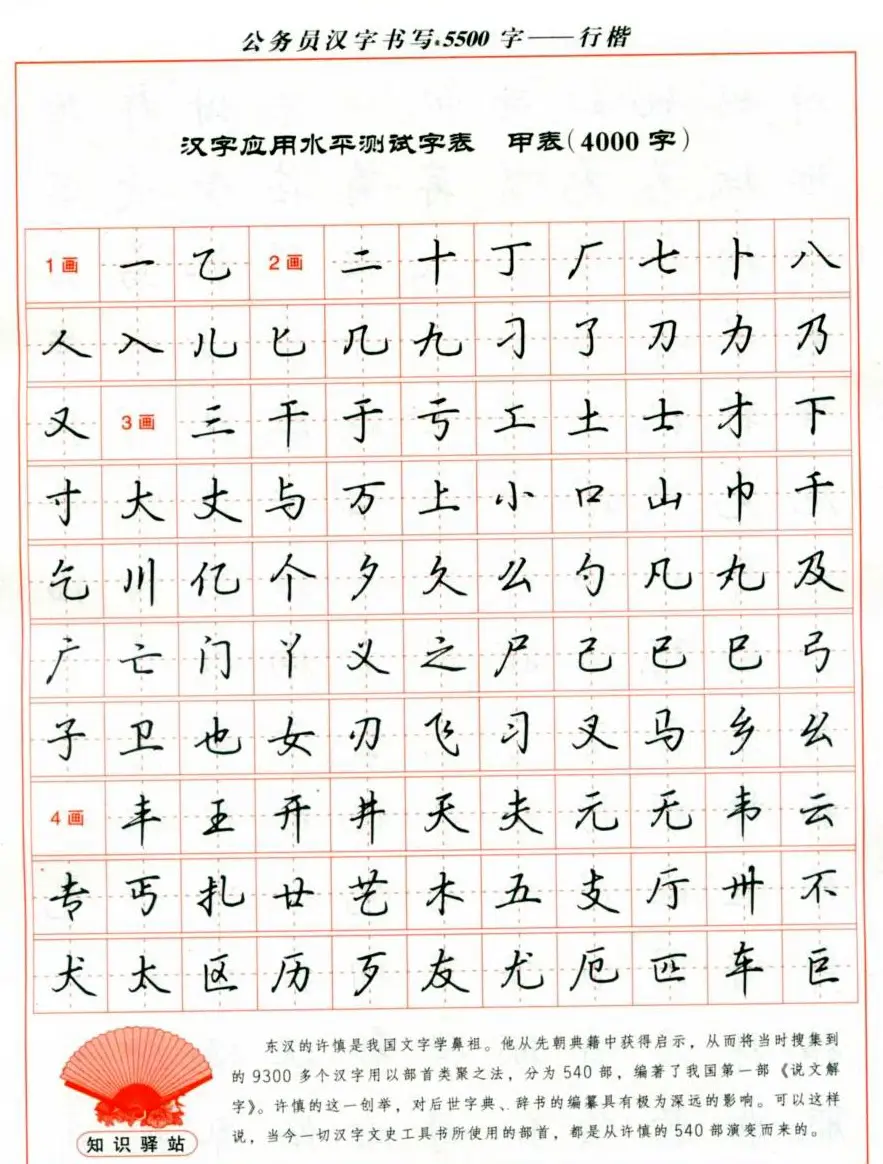 公务员汉字书写5500字——行楷
汉字应用水平测试字表 甲表(4000字)
1画 一 乙 2画 二 十 丁 厂 七 卜 八
人 入 儿 匕 几 九 刁 了 刀 力 乃
又 3画 三 干 于 亏 工 土 士 才 下
寸 大 丈 与 万 上 小 口 山 巾 千
乞 川 亿 个 夕 久 么 勺 凡 丸 及
广 亡 门 丫 义 之 尸 己 已 巳 弓
子 卫 也 女 刃 飞 习 叉 马 乡 幺
4画 丰 王 开 井 天 夫 元 无 韦 云
专 丐 扎 廿 艺 木 五 支 厅 卅 不
犬 太 区 历 歹 友 尤 厄 匹 车 巨
东汉的许慎是我国文字学鼻祖。他从先朝典籍中获得启示，从而将当时搜集到
的9300多个汉字用以部首类聚之法，分为540部，编著了我国第一部《说文解
字》。许慎的这一创举，对后世字典、辞书的编纂具有极为深远的影响。可以这样
说，当今一切汉字文史工具书所使用的部首，都是从许慎的540部演变而来的。
知识驿站